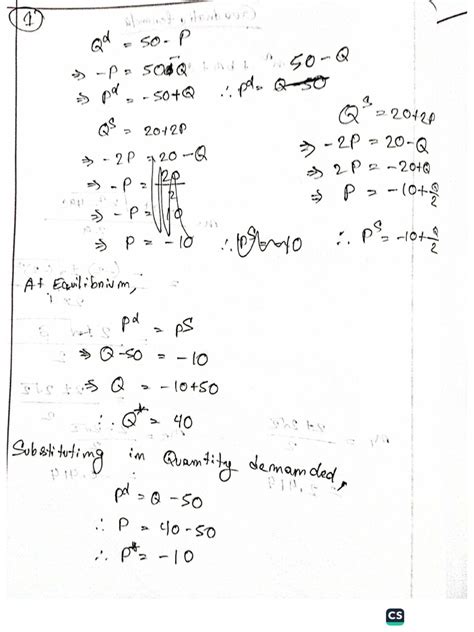 1
Q^d = 50 - P
⇒ -P = 50 Q
⇒ P^d = -50+Q ∴ P^d = Q-50 50-Q
Q^s = 20+2P
⇒ -2P = 20-Q
⇒ -P = 20/2
⇒ -P = 10
⇒ P = -10
Q^s = 20+2P
⇒ -2P = 20-Q
⇒ 2P = -20+Q
⇒ P = -10+Q/2
∴ P^s = -10+Q/2
At Equilibrium,
P^d = P^S
⇒ Q-50 = -10
⇒ Q = -10+50
∴ Q* = 40
Substituting in Quantity demanded,
P^d = Q-50
∴ P = 40-50
∴ P* = -10
CS